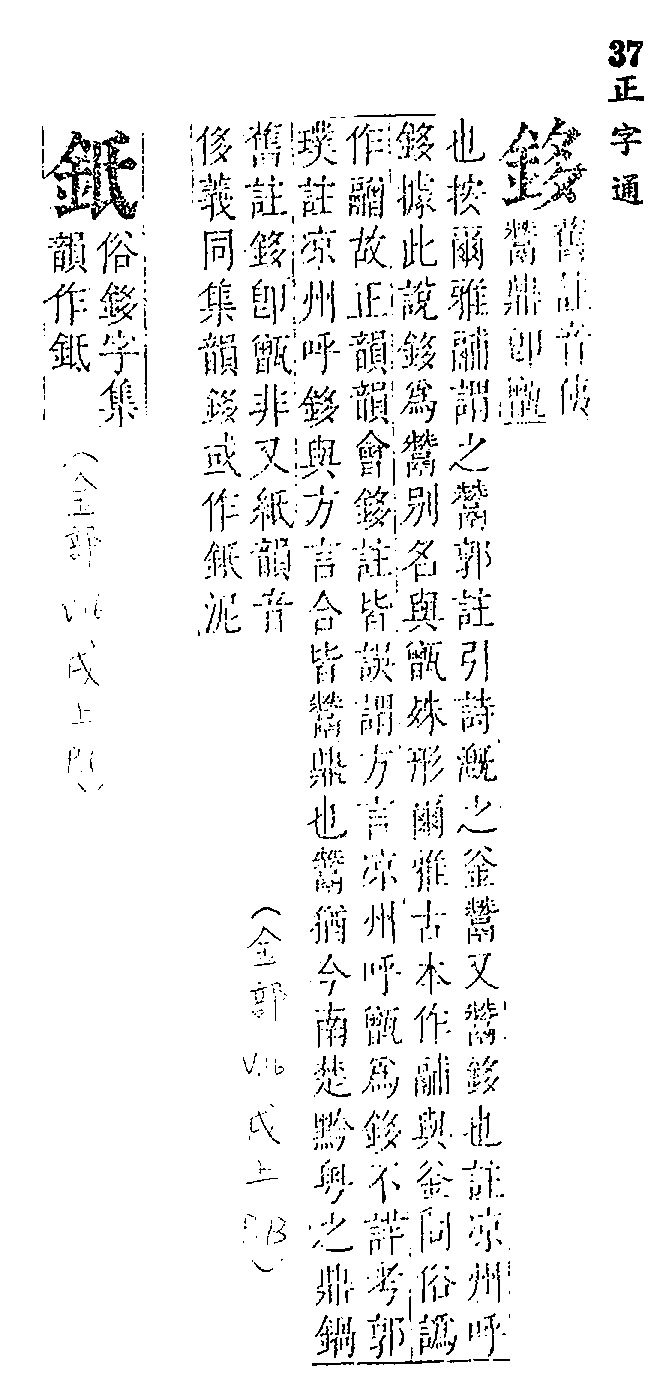 37正字通
鉹
舊註音侈
鬵鼎卽甑
也按爾雅䰝謂之鬵郭註引詩漑之釜鬵又鬵鉹也註凉州呼
鉹據此說鉹爲鬵别名與甑殊形爾雅古本作䰝與釜同俗譌
作䰝故正韻韻會鉹註皆誤謂方言凉州呼甑爲鉹不詳考郭
璞註凉州呼鉹與方言合皆鬵鼎也鬵猶今南楚黔粵之鼎鍋
舊註鉹卽甑非又紙韻音
侈義同集韻鉹或作䤠泥
(金部 V.16 戌上 P.13)
䤠
俗鉹字集
韻作䤠
(金部 V.16 戌上 P.1)